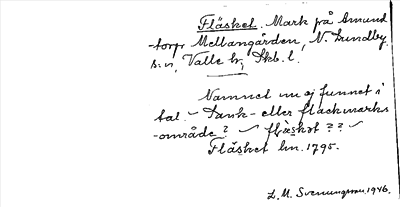 Fläsket. Mark på Amund
-torp Mellangården, N. Lundby
s:n, Valle h., Skb. l.
Namnet nu ej funnet i
tal. – Sank- eller flackmarks
-område? flaskot??
Fläsket hn. 1795.
L. M. Svenungsson, 1946.